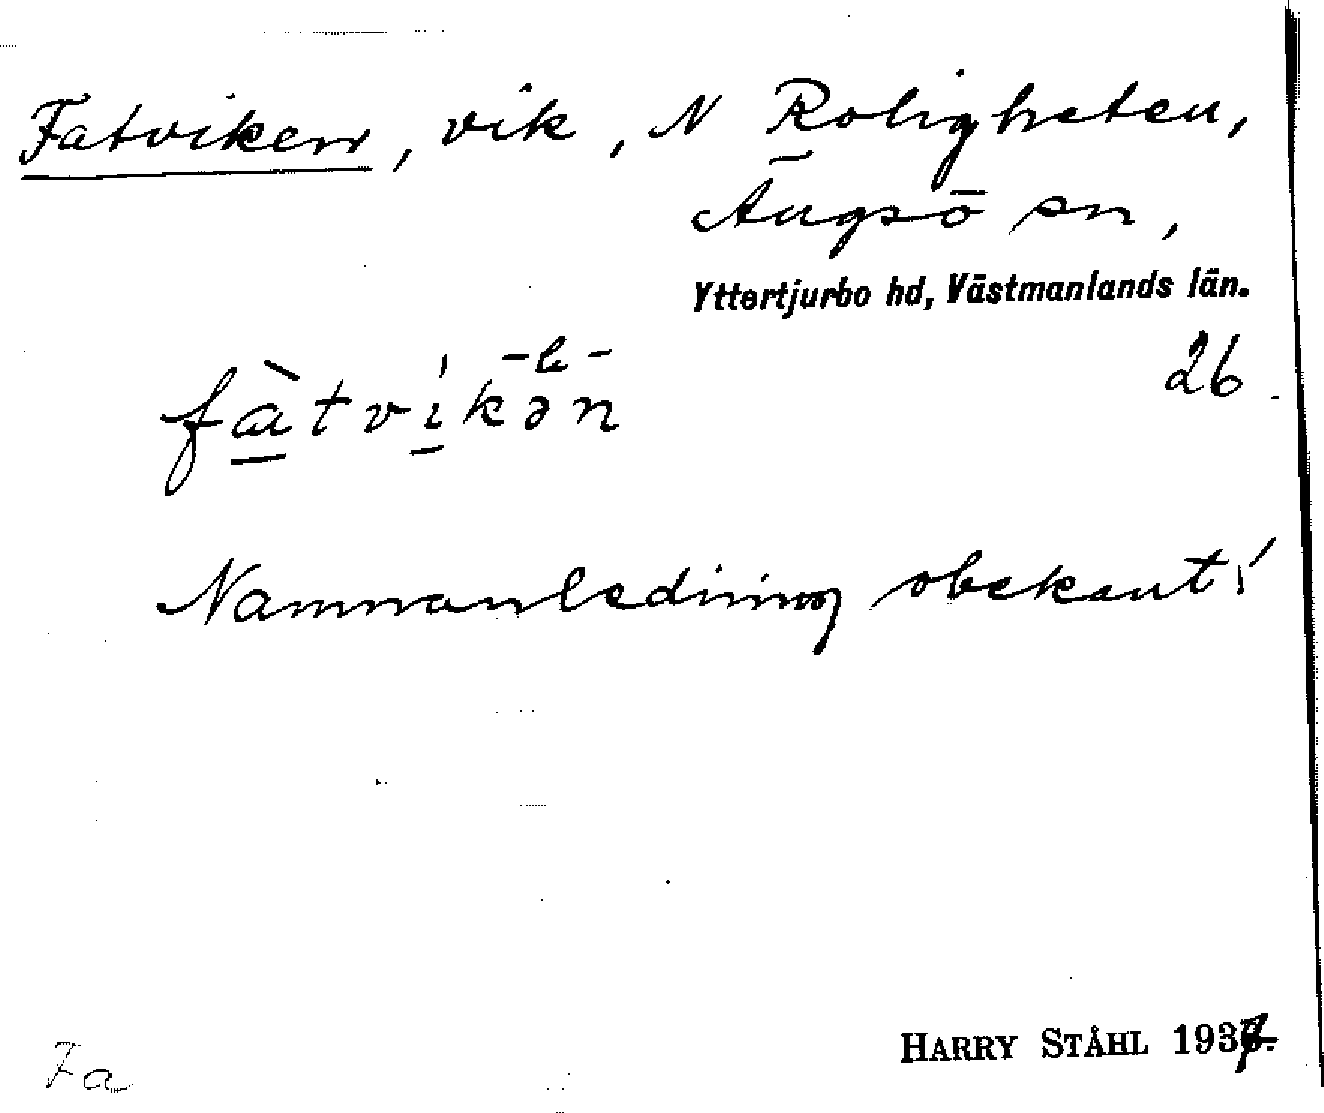 Fatviken, vik, N Roligheten,
Ängsö sn,
Yttertjurbo hd, Västmanlands län.
-e-
fàtvikən
26
Namnanledning obekant!
Fa
HARRY STÅHL 1937.